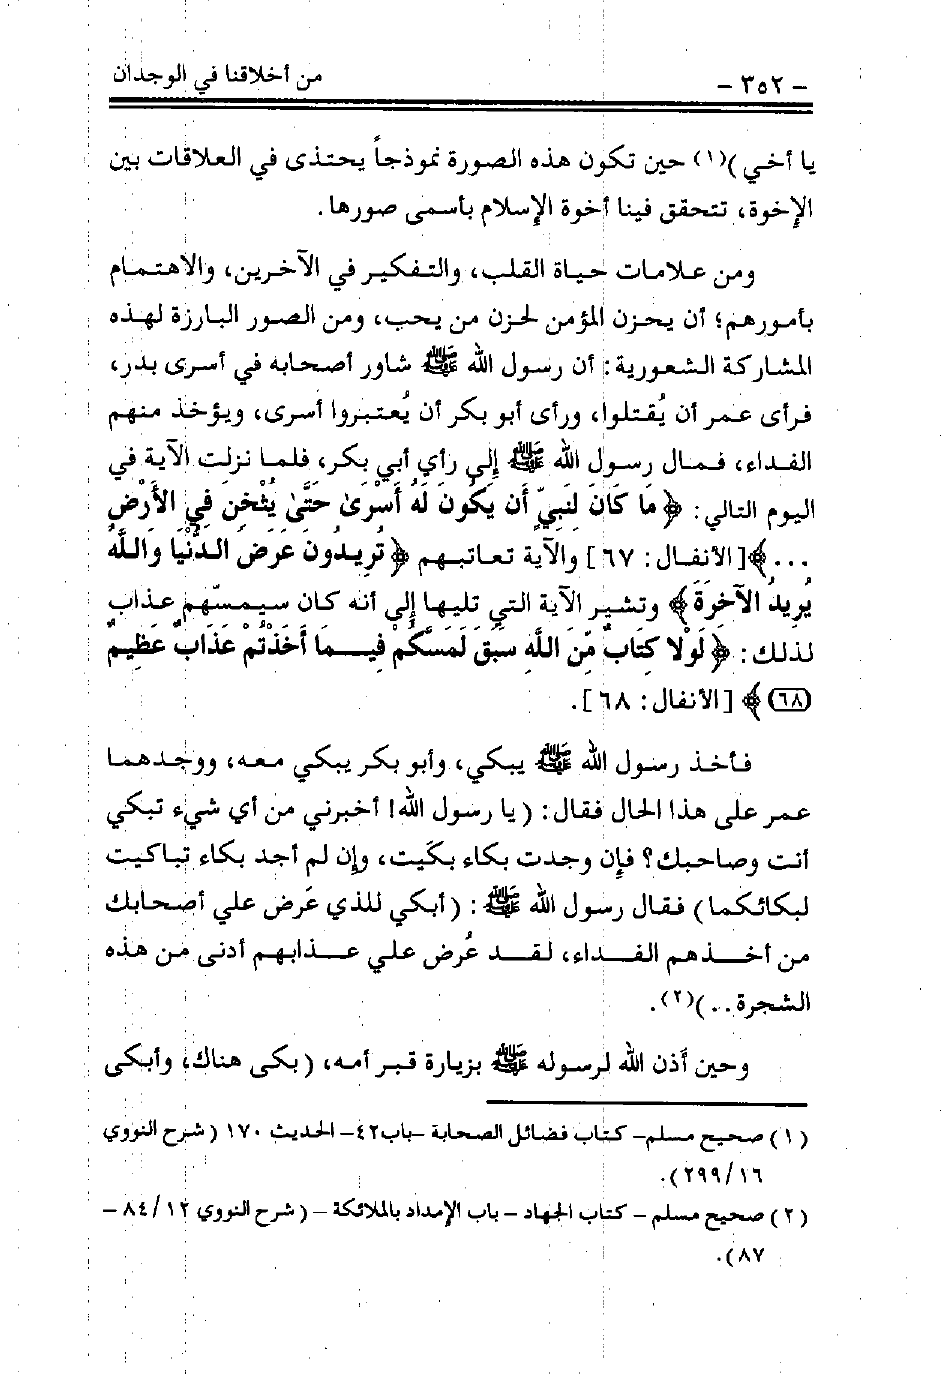 من أخلاقنا في الوجدان
– ٣٥٢ –
يا أخي )(١) حين تكون هذه الصورة نموذجاً يحتذى في العلاقات بين
الإخوة، تتحقق فينا أخوة الإسلام بأسمى صورها.
ومن علامات حياة القلب، والتفكير في الآخرين، والاهتمام
بأمورهم؛ أن يحزن المؤمن لحزن من يحب، ومن الصور البارزة لهذه
المشاركة الشعورية: أن رسول الله ﷺ شاور أصحابه في أسرى بدر،
فرأى عمر أن يُقتلوا، ورأى أبو بكر أن يُعتبروا أسرى، ويؤخذ منهم
الفداء، فمال رسول الله ﷺ إلى رأي أبي بكر، فلما نزلت الآية في
اليوم التالي: ﴿ مَا كَانَ لِنَبِيٍّ أَن يَكُونَ لَهُ أَسْرَىٰ حَتَّىٰ يُثْخِنَ فِي الأَرْضِ
...﴾[ الأنفال: ٦٧ ] والآية تعاتبهم ﴿ تُرِيدُونَ عَرَضَ الدُّنْيَا وَاللَّهُ
يُرِيدُ الآخِرَةَ ﴾ وتشير الآية التي تليها إلى أنه كان سيمسّهم عذاب
لذلك: ﴿ لَوْلا كِتَابٌ مِّنَ اللَّهِ سَبَقَ لَمَسَّكُمْ فِيمَا أَخَذْتُمْ عَذَابٌ عَظِيمٌ
(٦٨) ﴾ [ الأنفال: ٦٨ ].
فأخذ رسول الله ﷺ يبكي، وأبو بكر يبكي معه، ووجدهما
عمر على هذا الحال فقال: ( يا رسول الله! أخبرني من أي شيء تبكي
أنت وصاحبك؟ فإن وجدت بكاء بكَيت، وإن لم أجد بكاء تباكيت
لبكائكما ) فقال رسول الله ﷺ : ( أبكي للذي عَرَض علي أصحابك
من أخذهم الفداء، لقد عُرض علي عذابهم أدنى من هذه
الشجرة .. )(٢).
وحين أذن الله لرسوله ﷺ بزيارة قبر أمه، ( بكى هناك، وأبكى
( ١ ) صحيح مسلم– كتاب فضائل الصحابة –باب٤٢– الحديث ١٧٠ ( شرح النووي
١٦ /٢٩٩ ).
( ٢ ) صحيح مسلم – كتاب الجهاد – باب الإمداد بالملائكة – ( شرح النووي ١٢ /٨٤ –
٨٧ ).